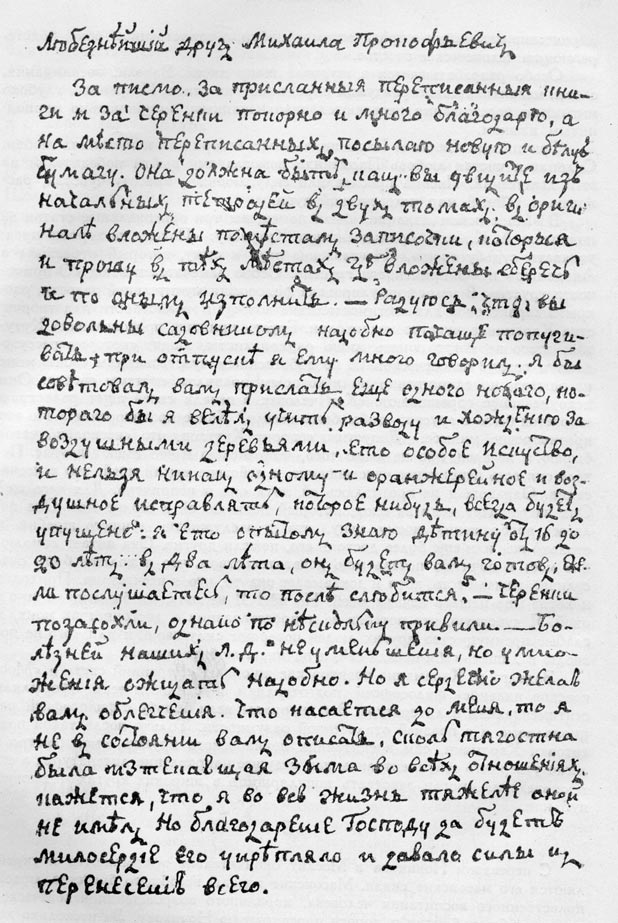 Любезнѣйшій друг Михаила Прокофьевич
За писмо, За присланныя переписанныя кни-
ги и За черенки покорно и много благодарю, а
на мѣсто переписанных, посылаю новую и бѣлую
бумагу. Она должна быть, кац вы увидите изъ
начальных тетрадей в двух томах. в ориги-
налѣ вложены по мѣстам записочки, которыя
и прошу в тѣх мѣстах гдѣ вложены сберечь
и по оным изполнить. — Радуюсь, что вы
довольны садовником надобно почаще понуги-
вать, при отпускѣ я ему много говорил. Я бы
совѣтовал вам прислать еще одного новаго, ко-
тораго бы я велѣл учить разводу и хожденію за
воздушными деревьями. ето особое искуство,
и нельзя никац одному и оранжерейное и воз-
душное исправлять, которое нибудь, всегда будет
упущено: я ето опытом знаю дѣтину от 16 до
20 лѣт. в два лѣта, он будет вам готов, еже-
ли послушаетесь, то послѣ слюбится. — Черенки
позасохли, однако по нѣскольку привили. — Бо-
лѣзней наших л. д. не уменьшенія, но умно-
женія ожидать надобно. Но я сердечно желаю
вам облегченія. Что касается до меня, то я
не в состояніи вам описать, сколь тягостна
была изтекающая зима во всѣх отношеніях,
кажется, что я во всю жизнь тяжелѣе оной
не имѣл, Но благодареніе Господу да будетъ
милосердіе Его укрѣпляло и давало силы к
перенесенію всего.